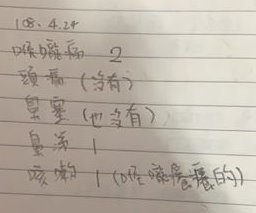 108. 4.24
喉嚨痛 2
頭痛 (沒有)
鼻塞 (也沒有)
鼻涕 1
咳嗽 1 (喉嚨癢癢的)